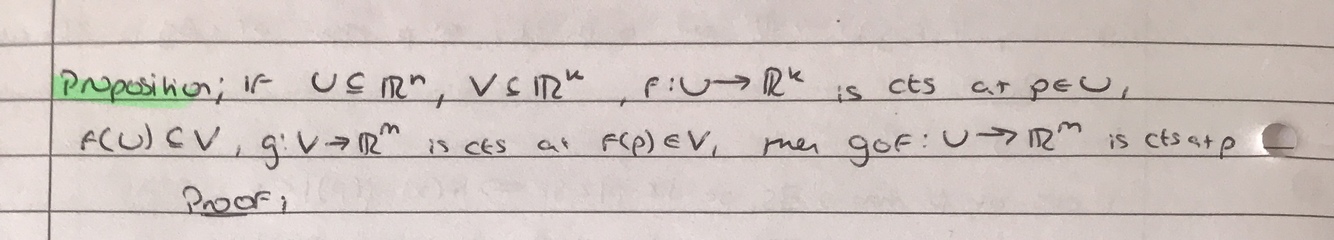 Proposition; if U ⊆ ℝⁿ, V ⊆ ℝᵏ, f: U → ℝᵏ is cts at p ∈ U,
f(U) ⊆ V, g: V → ℝᵐ is cts at f(p) ∈ V, then gof: U → ℝᵐ is cts at p
Proof;